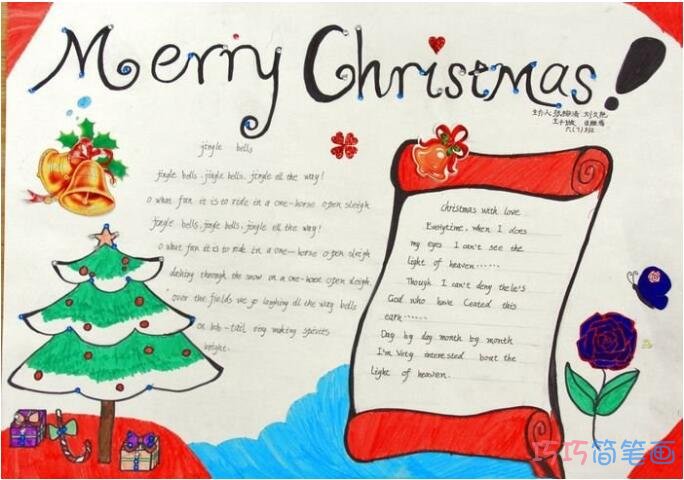 Merry Christmas!
主办人 张
六(7)班
jingle bells
jingle bells, jingle bells, jingle all the way!
o what fun it is to ride in a one-horse open sleigh
jingle bells, jingle bells, jingle all the way!
o what fun it is to ride in a one-horse open sleigh
dashing through the snow on a one-horse open sleigh
over the fields we go laughing all the way bells
on bob-tail ring making spirits
bright.
Christmas with love
Everytime, when I does
my eyes I can't see the
light of heaven......
Though I can't deny the
God who have Ceated this
earn......
Day by day month by month
I'm Very interested bout the
Light of heaven.
巧巧简笔画